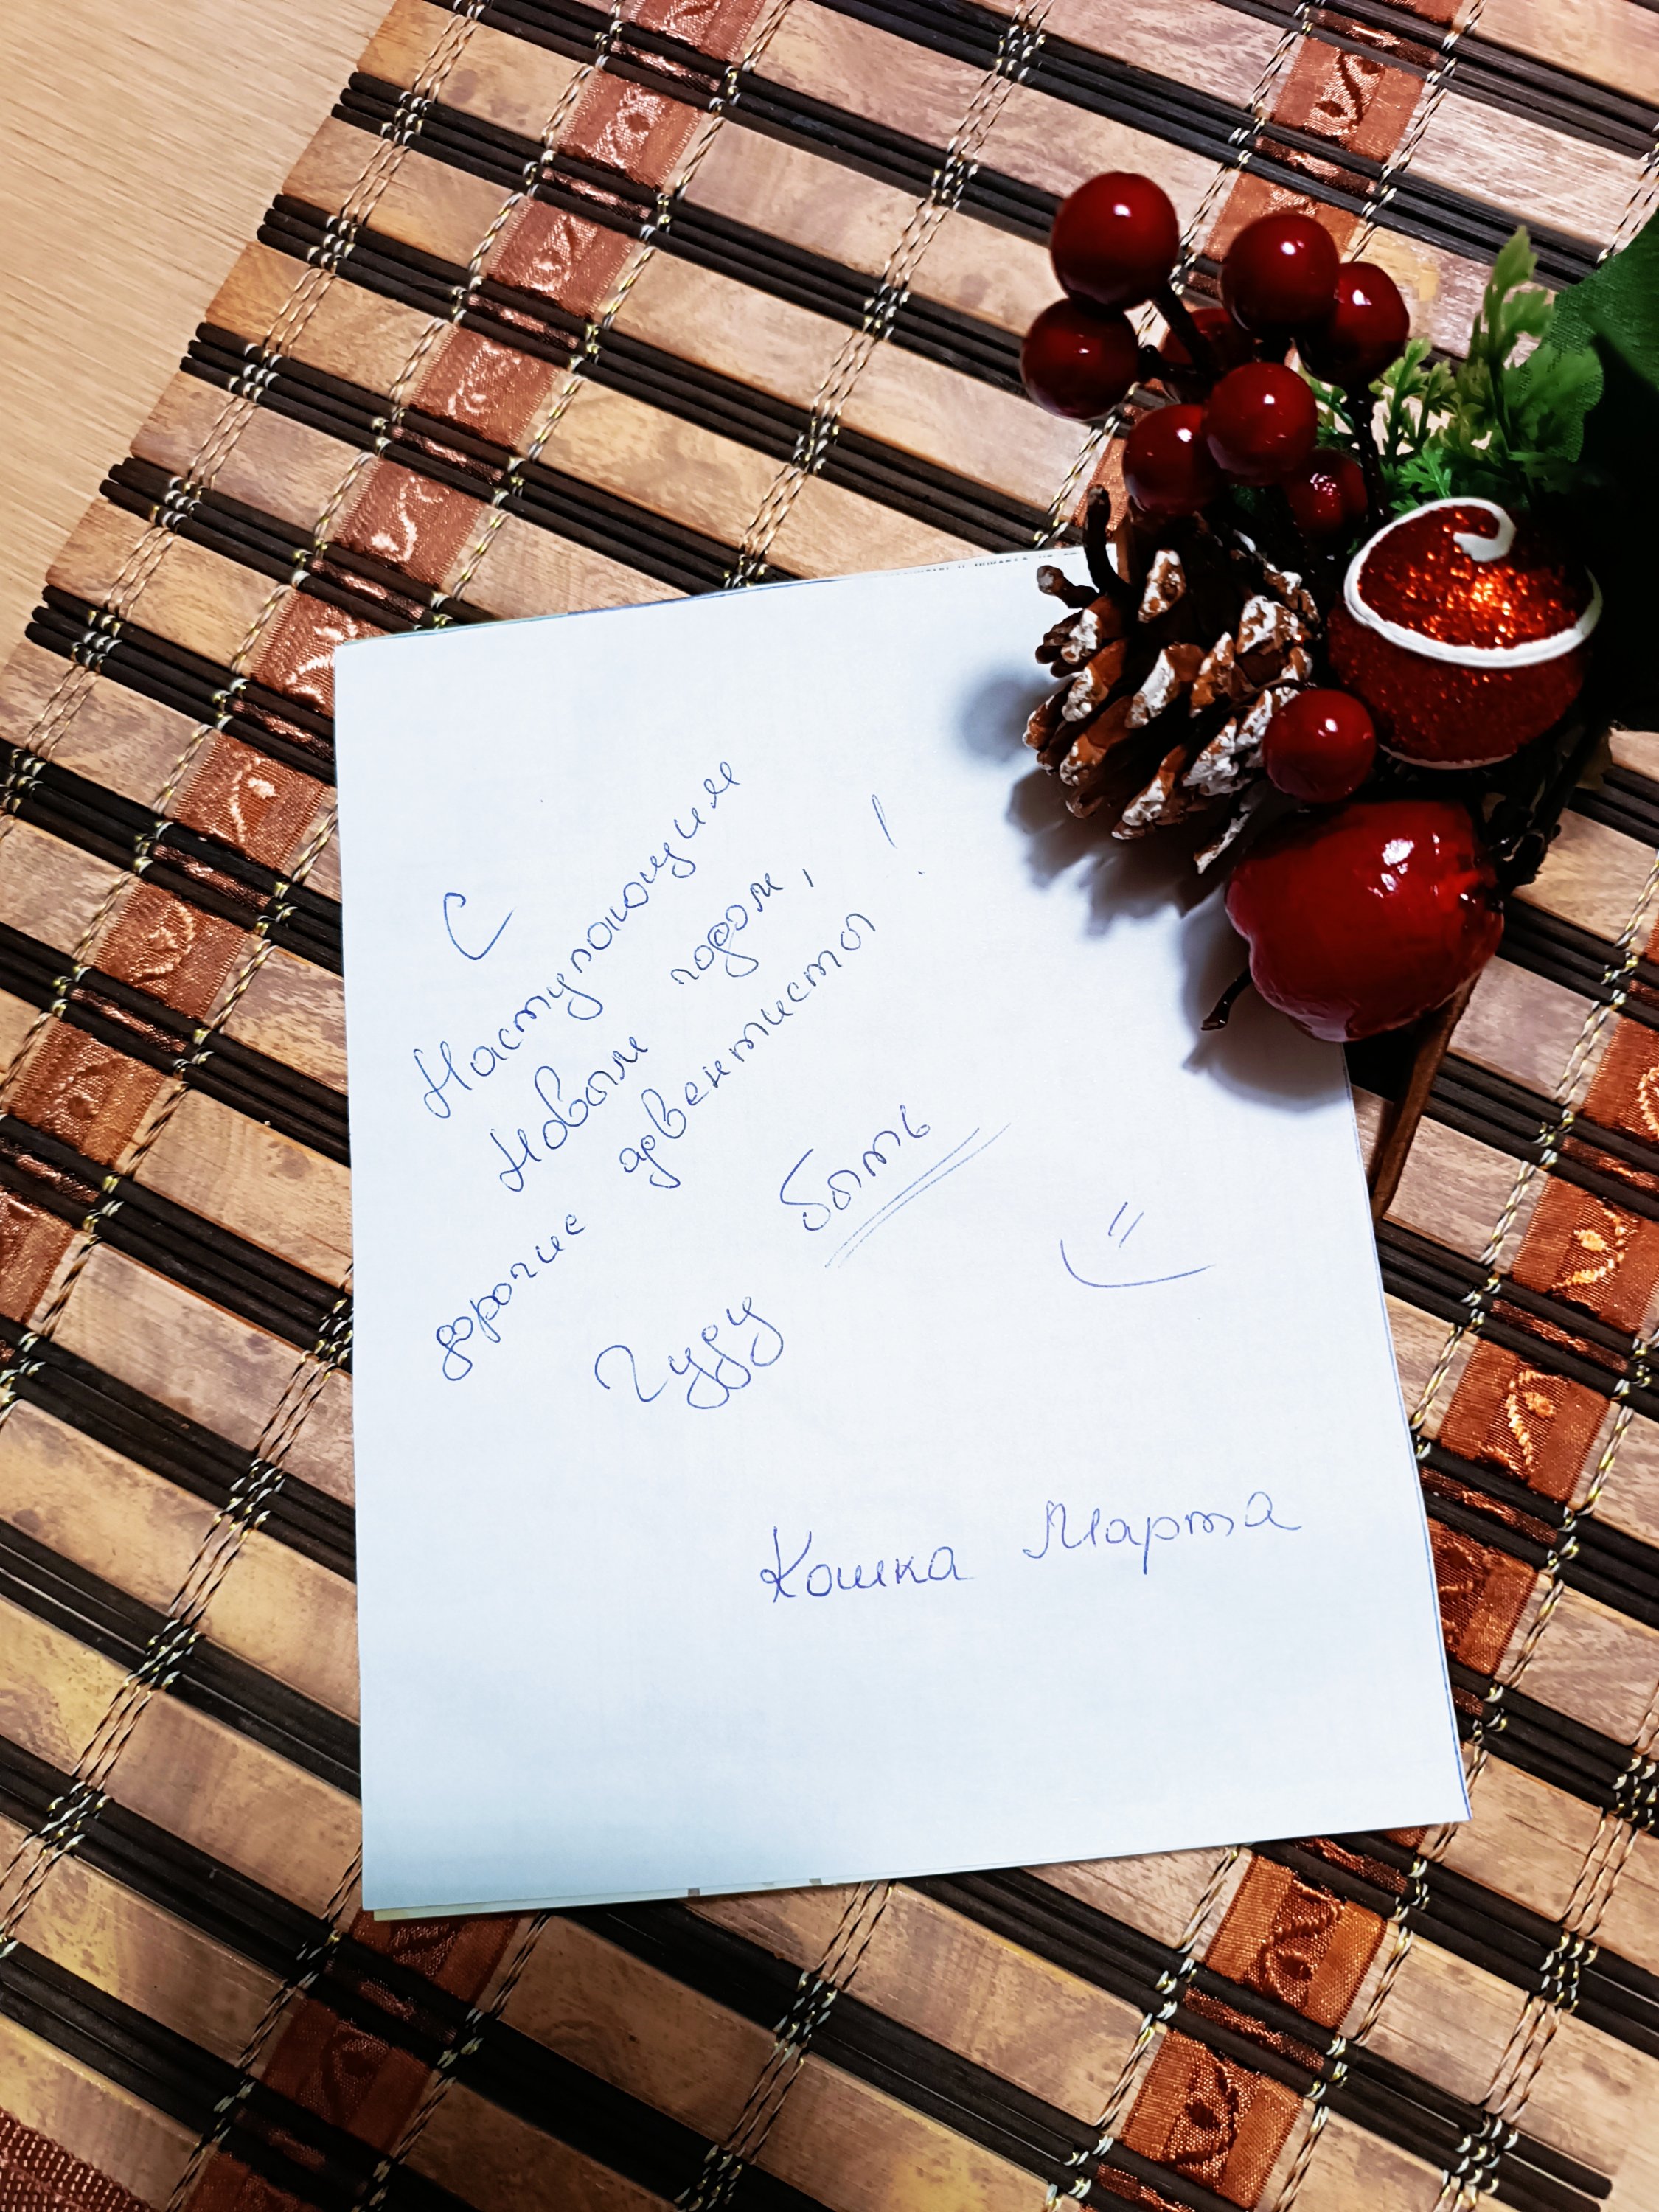 С
Наступающим
Новым годом,
дорогие адвентисты!
Чуду быть
Кошка Марта